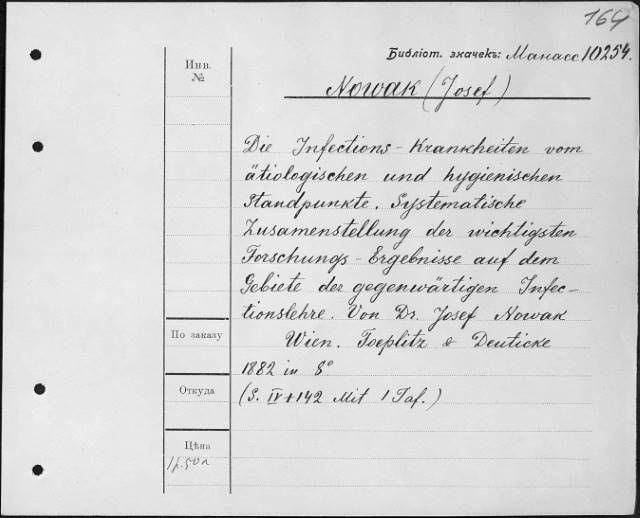 164
Библіот. значекъ: Манасс 10254.
Инв.
№
Nowak (Josef)
Die Infections-Krankheiten vom
ätiologischen und hygienischen
Standpunkte. Systematische
Zusamenstellung der wichtigsten
Forschungs-Ergebnisse auf dem
Gebiete der gegenwärtigen Infec-
tionslehre. Von Dr. Josef Nowak
Wien. Toeplitz & Deuticke
1882 in 8°
(S. IV+142 Mit 1 Taf.)
По заказу
Откуда
Цѣна